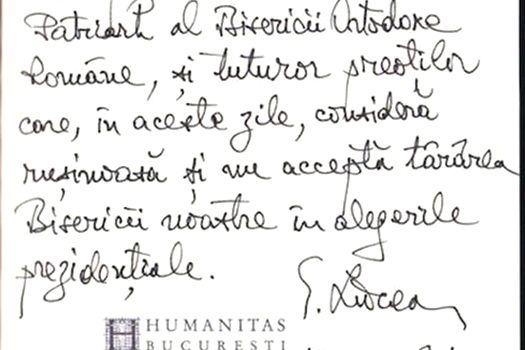 Patriarh al Bisericii Ortodoxe
Române, și tuturor preoților
care, în aceste zile, consideră
rușinoasă și nu acceptă târârea
Bisericii noastre în alegerile
prezidențiale.
G. Liiceanu
HUMANITAS
BUCUREȘTI